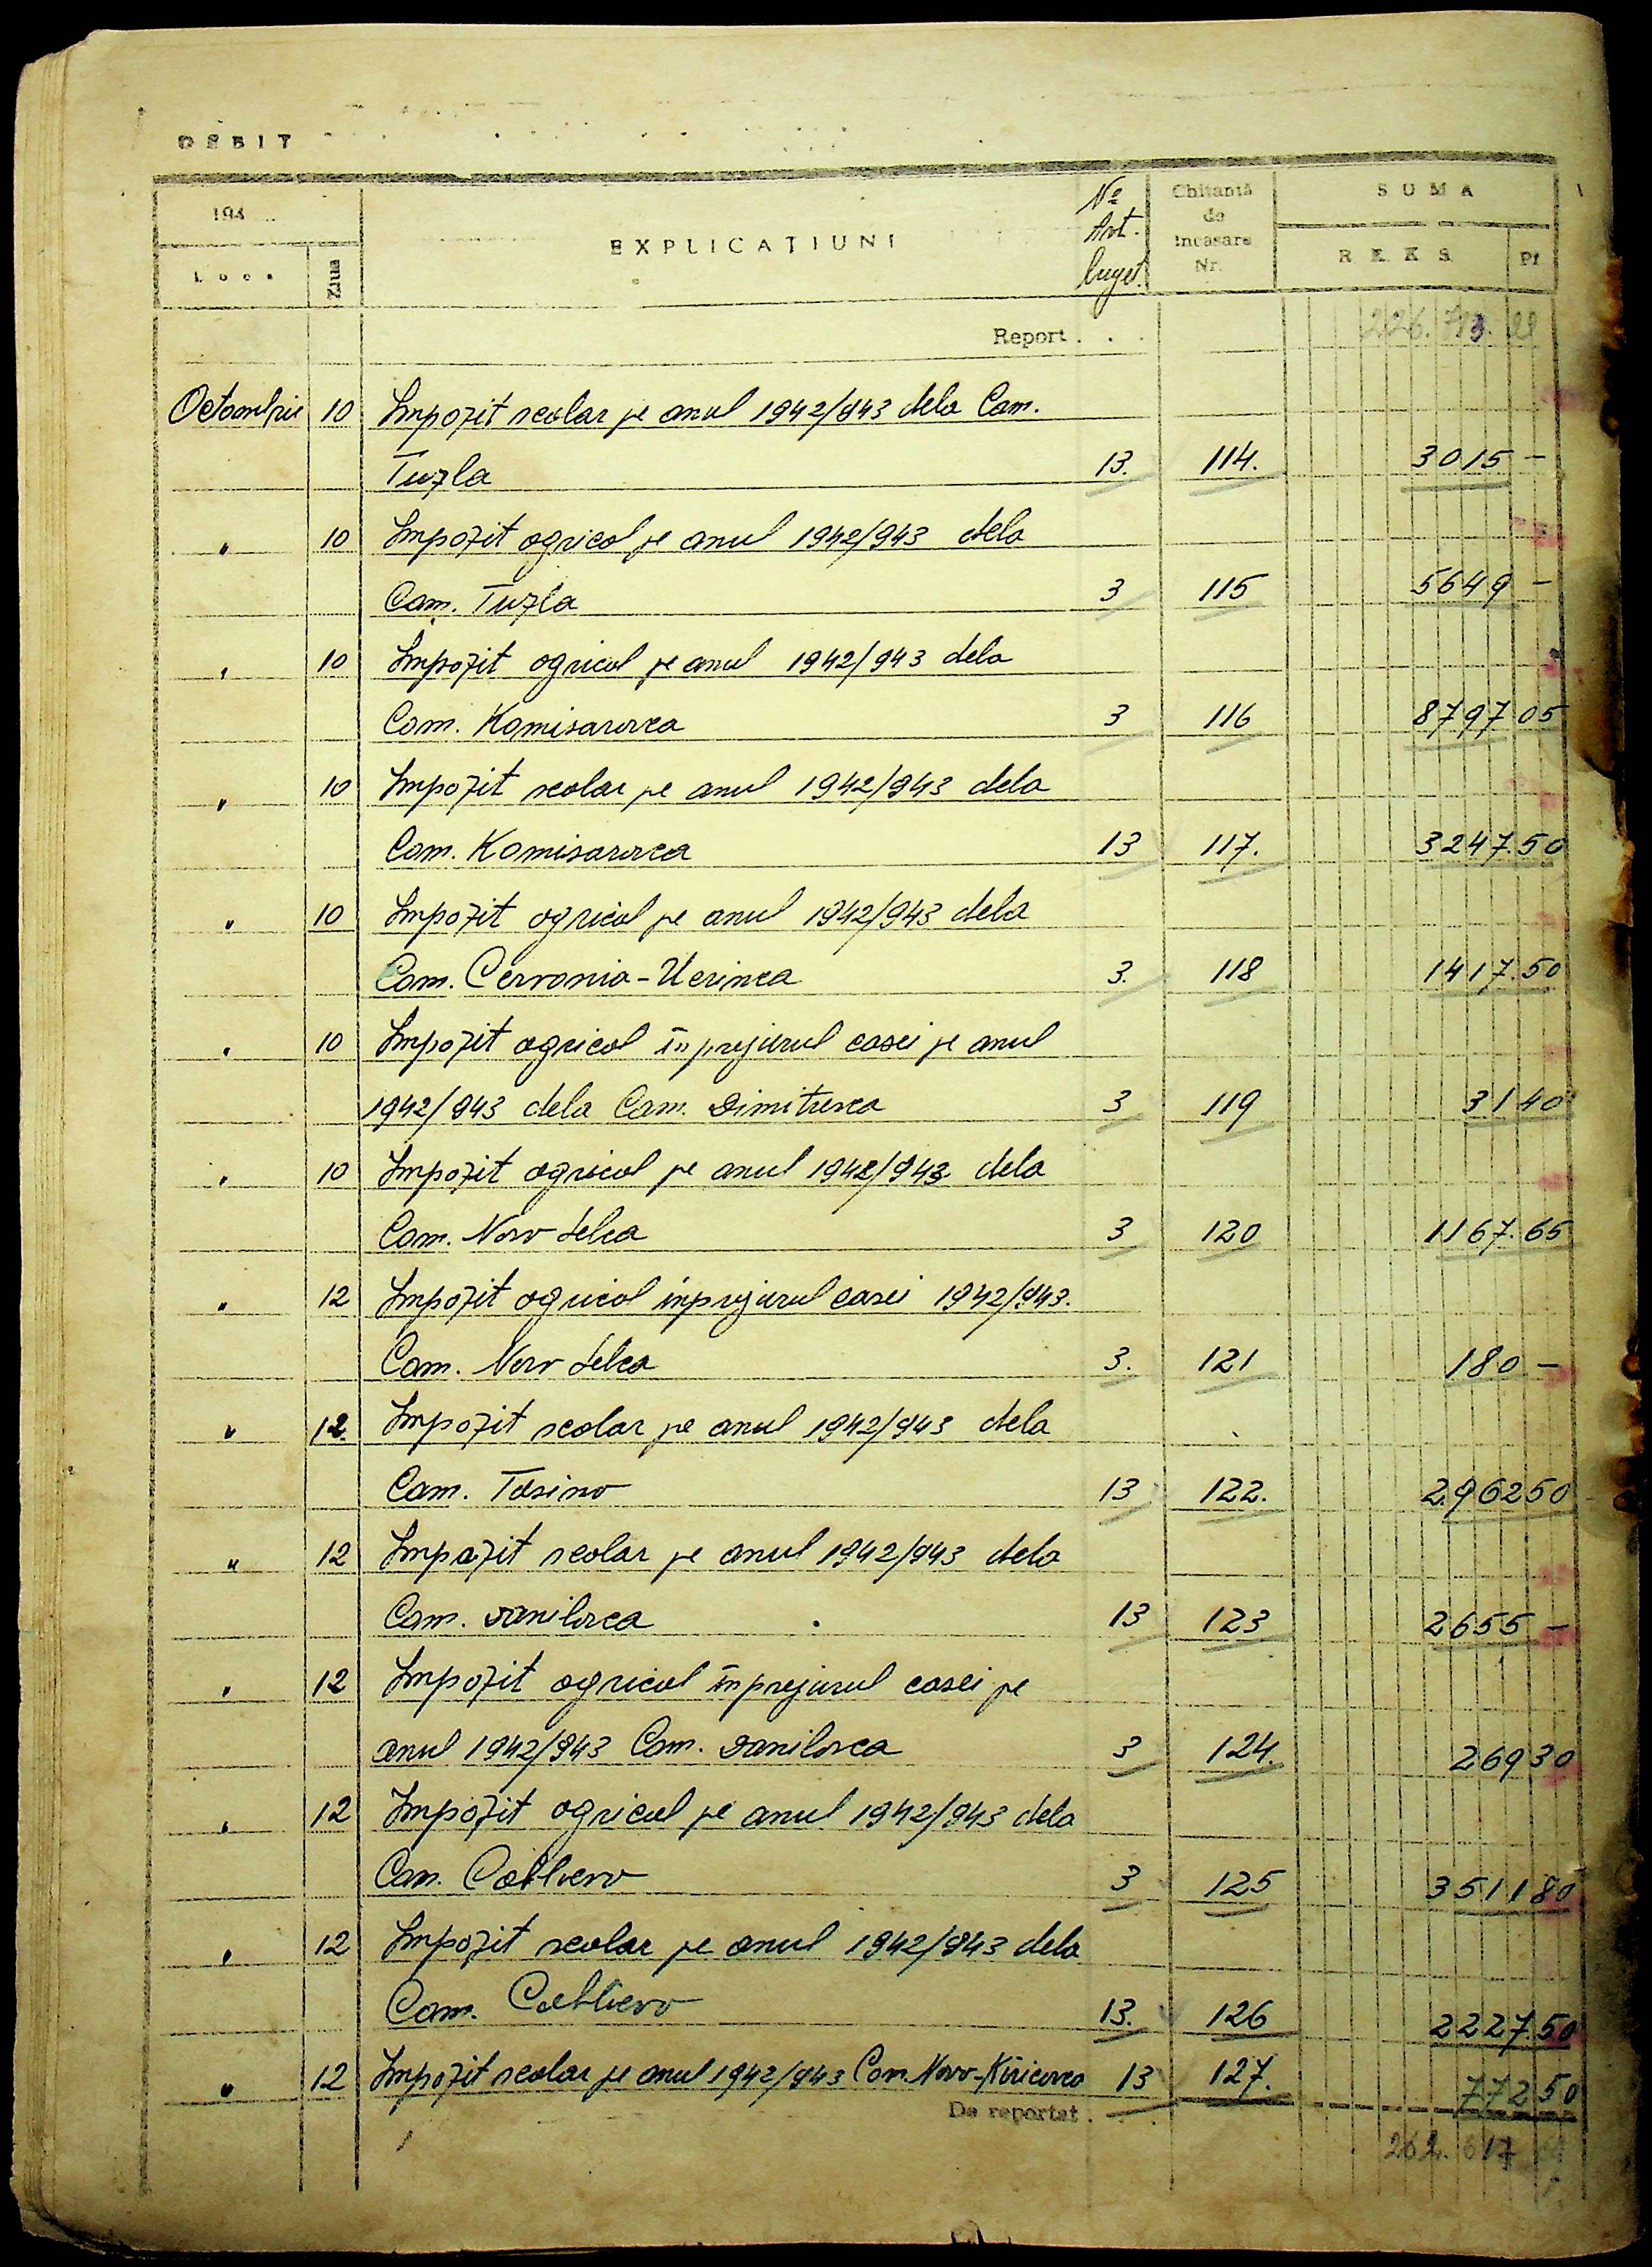 DEBIT
194
EXPLICAȚIUNI
Nº Art. buget.
Chitanță de încasare Nr.
SUMA
Luna
Ziua
R.K.K.S.
Pf
Report . . . 226.
Octombrie 10 Impozit scolar pe anul 1942/943 dela Com.
Tuzla 13. 114. 3015 –
" 10 Impozit agricol pe anul 1942/943 dela
Com. Tuzla 3 115 5649 –
" 10 Impozit agricol pe anul 1942/943 dela
Com. Komisarovca 3 116 8797 05
" 10 Impozit scolar pe anul 1942/943 dela
Com. Komisarovca 13 117. 3247.50
" 10 Impozit agricol pe anul 1942/943 dela
Com. Cervonia-Ucrinca 3. 118 1417.50
" 10 Impozit agricol înprejurul casei pe anul
1942/943 dela Com. Dimitrevca 3 119 31 40
" 10 Impozit agricol pe anul 1942/943 dela
Com. Novo Selca 3 120 1167.65
" 12 Impozit agricol inprejurul casei 1942/943.
Com. Novo Selca 3. 121 180 –
" 12. Impozit scolar pe anul 1942/943 dela
Com. Tasino 13 122. 2962 50
" 12 Impozit scolar pe anul 1942/943 dela
Com. Danilovca 13 123 2655 –
" 12 Impozit agricol înprejurul casei pe
anul 1942/943 Com. Danilovca 3 124. 269 30
" 12 Impozit agricol pe anul 1942/943 dela
Com. 3 125 3511 80
" 12 Impozit scolar pe anul 1942/943 dela
Com. 13. 126 2227.50
" 12 Impozit scolar pe anul 1942/943 Com. Novo-Kiricovca 13 127. 772 50
De reportat . . . 262. 617